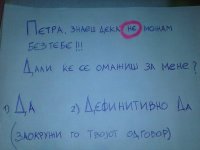 ПЕТРА, ЗНАЕШ ДЕКА НЕ МОЖАМ
БЕЗ ТЕБЕ !!!
ДАЛИ ЌЕ СЕ ОМАЖИШ ЗА МЕНЕ ?
1) ДА 2) ДЕФИНИТИВНО ДА
(ЗАОКРУЖИ ГО ТВОЈОТ ОДГОВОР)